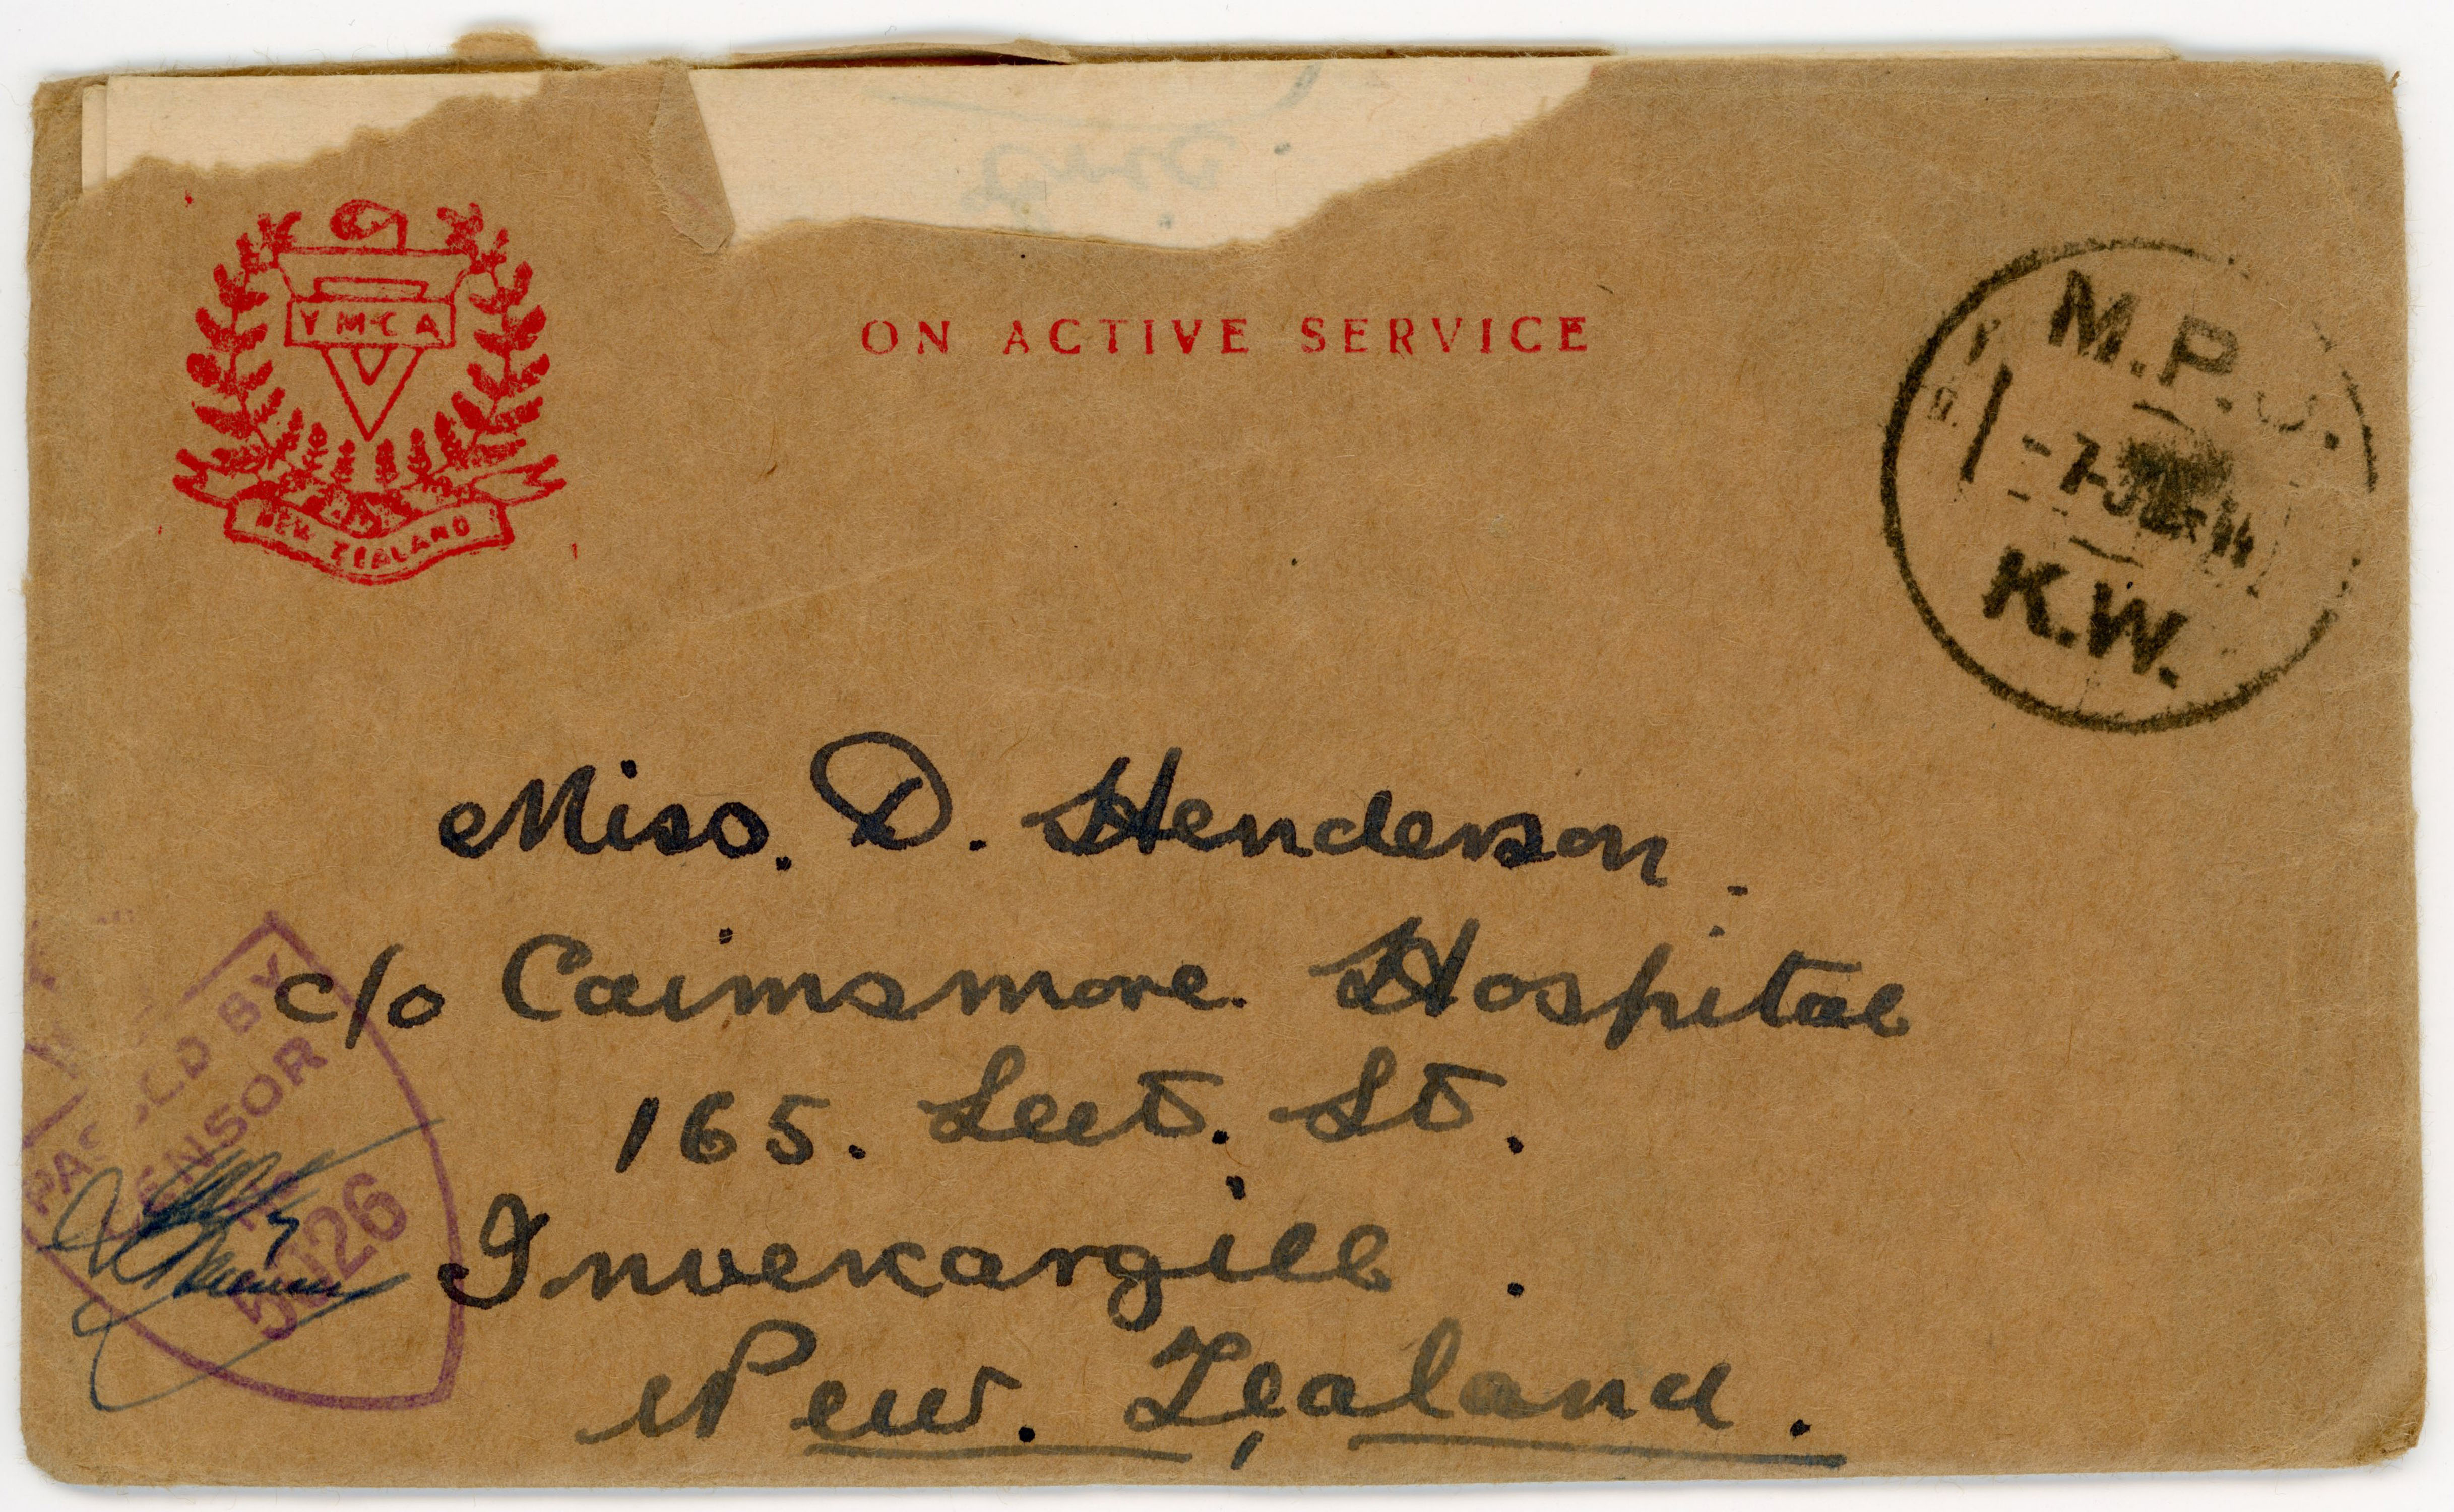 YMCA
NEW ZEALAND
ON ACTIVE SERVICE
M.P.O.
K.W.
Miss. D. Henderson.
c/o Cairnsmore. Hospital
165. Leet. St.
Invercargill.
New. Zealand.
PASSED BY
CENSOR
5026